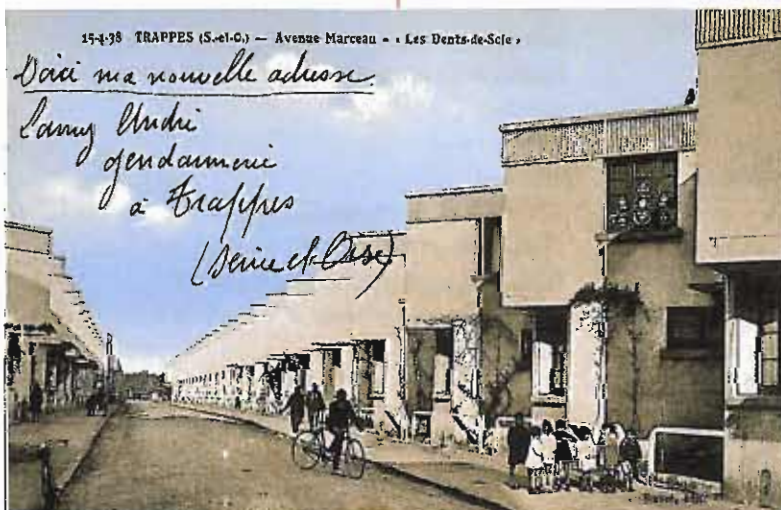 15-4-38 TRAPPES (S.-et-O.) — Avenue Marceau - « Les Dents-de-Scie »
Voici ma nouvelle adresse
Lamy André
gendarmerie
à Trappes
(Seine et Oise)